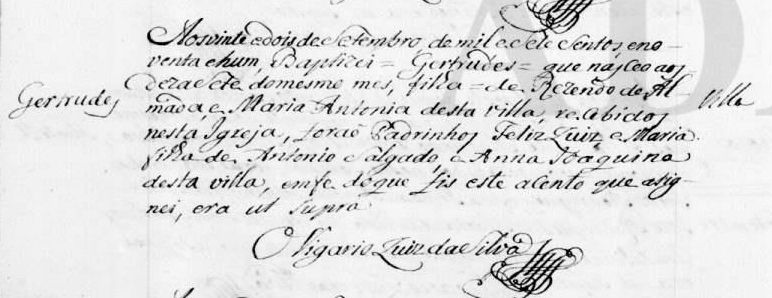 Aos vinte e dois de Setembro, de mil e sete Sentos, eno-
venta e hum, Baptizei = Gertrudes = que nasceo aos
dezasete, do mesmo mes, filha = de Rezendo de Al-
mada, e Maria Antonia desta villa, recebidos
Gertrudes
Villa
nesta Igreja, forão Padrinhos Feliz Luiz, e Maria
filha de Antonio Salgado, e Anna Joaquina
desta villa, em fe do que fis este acento que asig-
nei, era ut supra
O Vigario Luiz da Silva